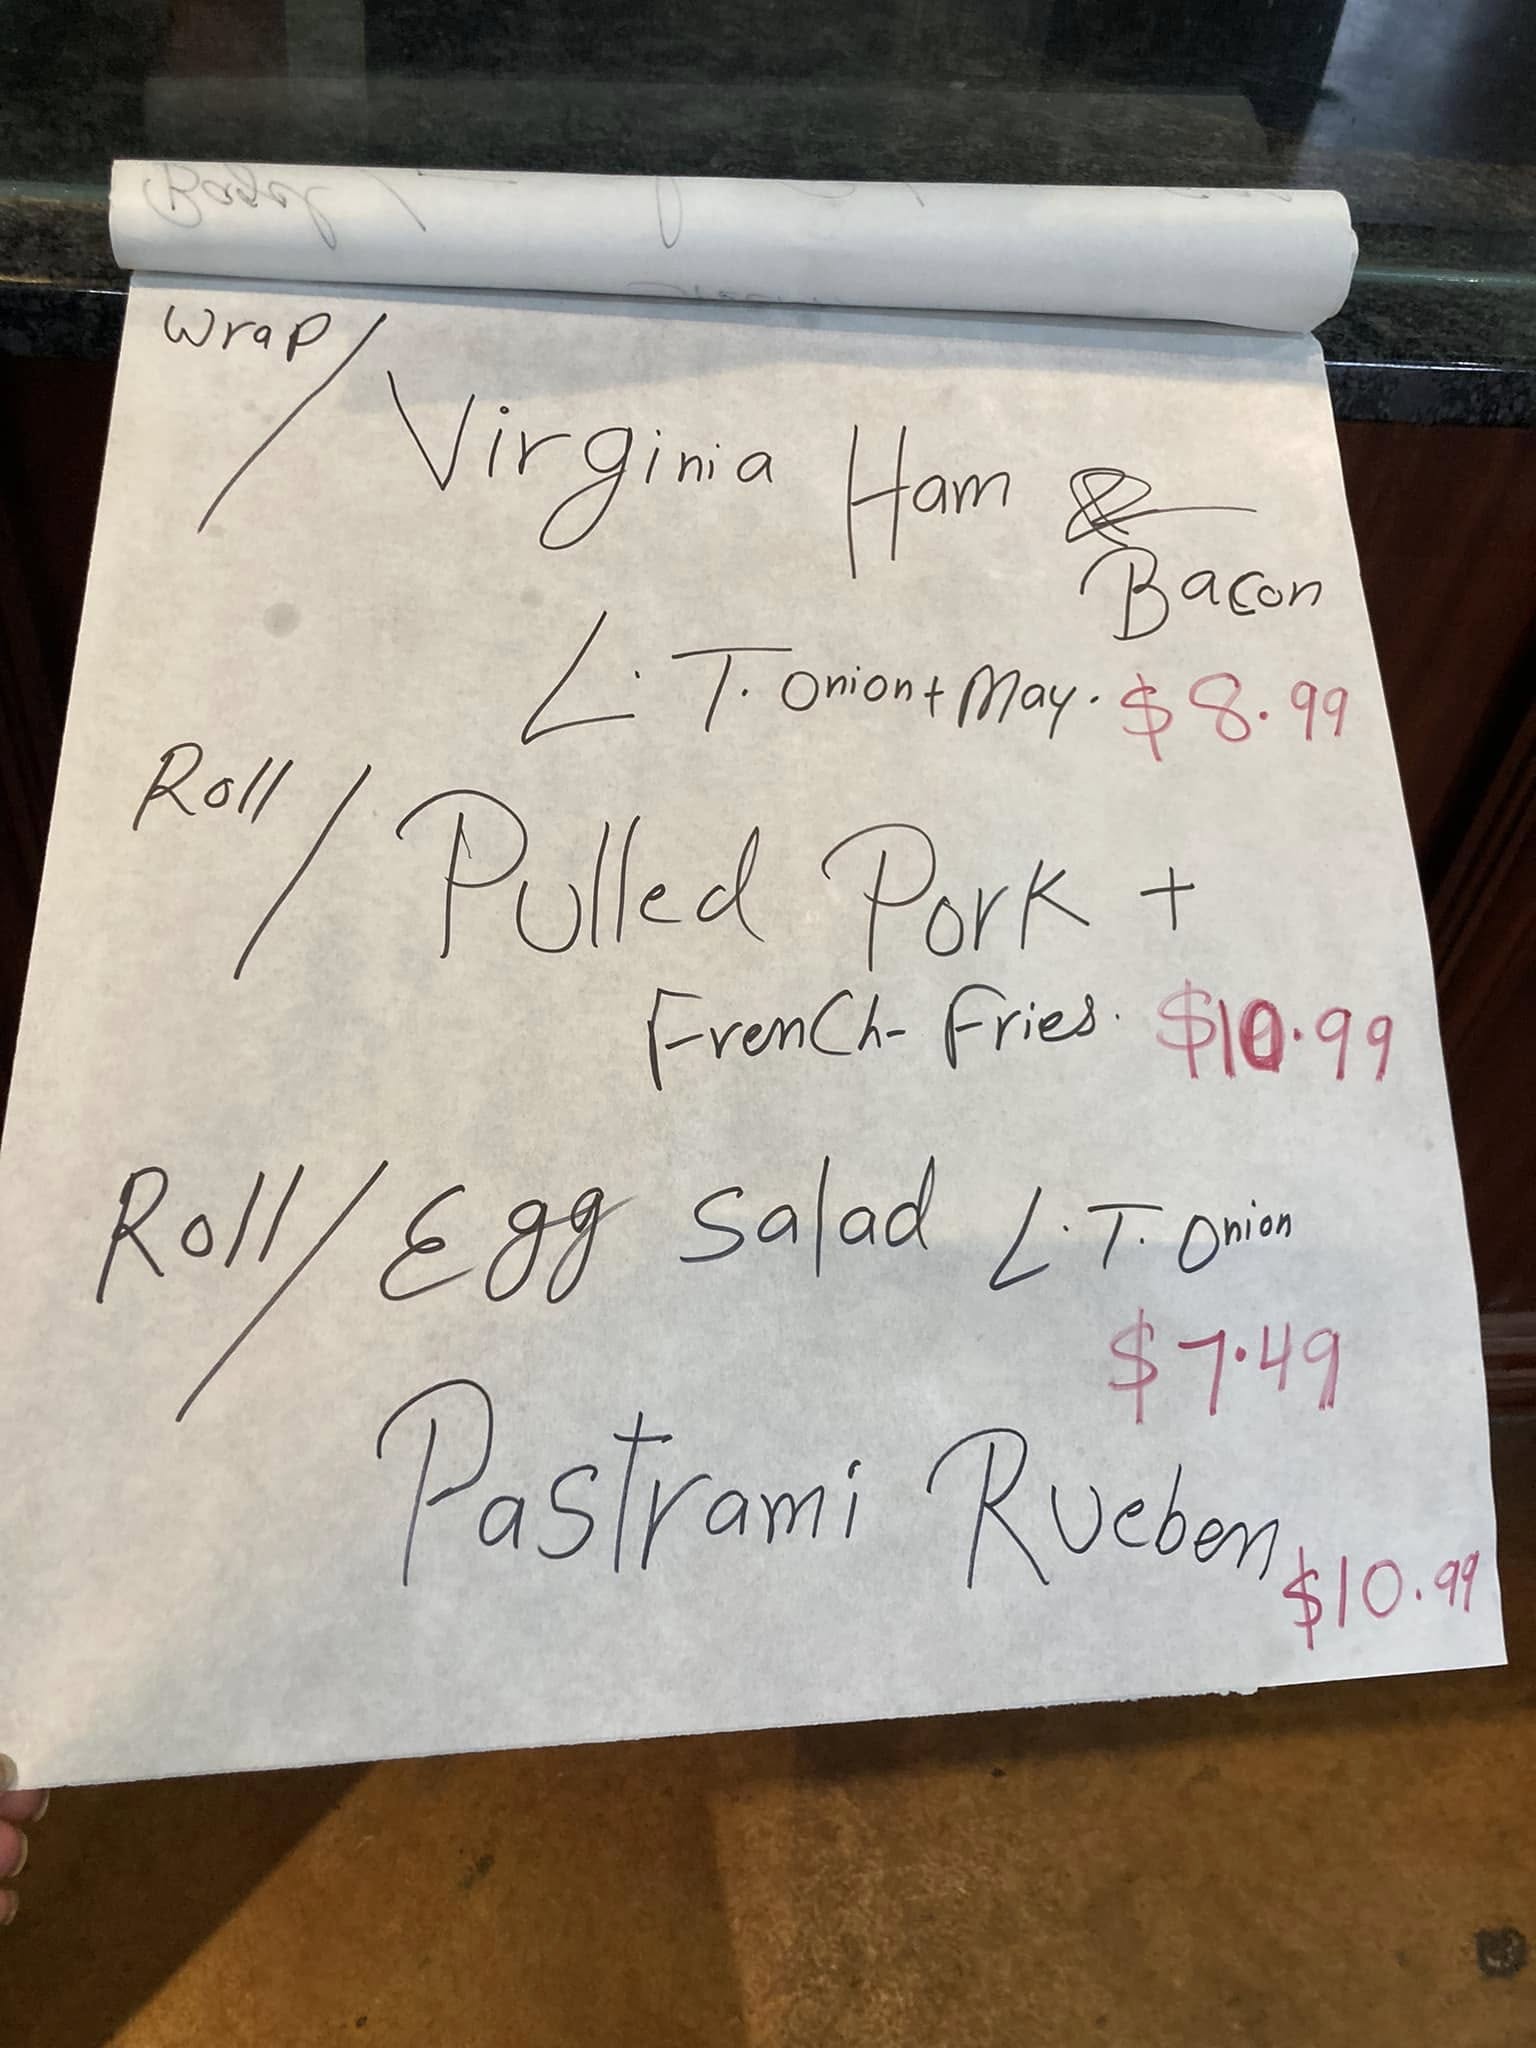 Wrap/
Virginia Ham &
Bacon
L. T. Onion + May. $8.99
Roll/
Pulled Pork +
French-Fries. $10.99
Roll/ Egg Salad L. T. Onion
$7.49
Pastrami Rueben
$10.99